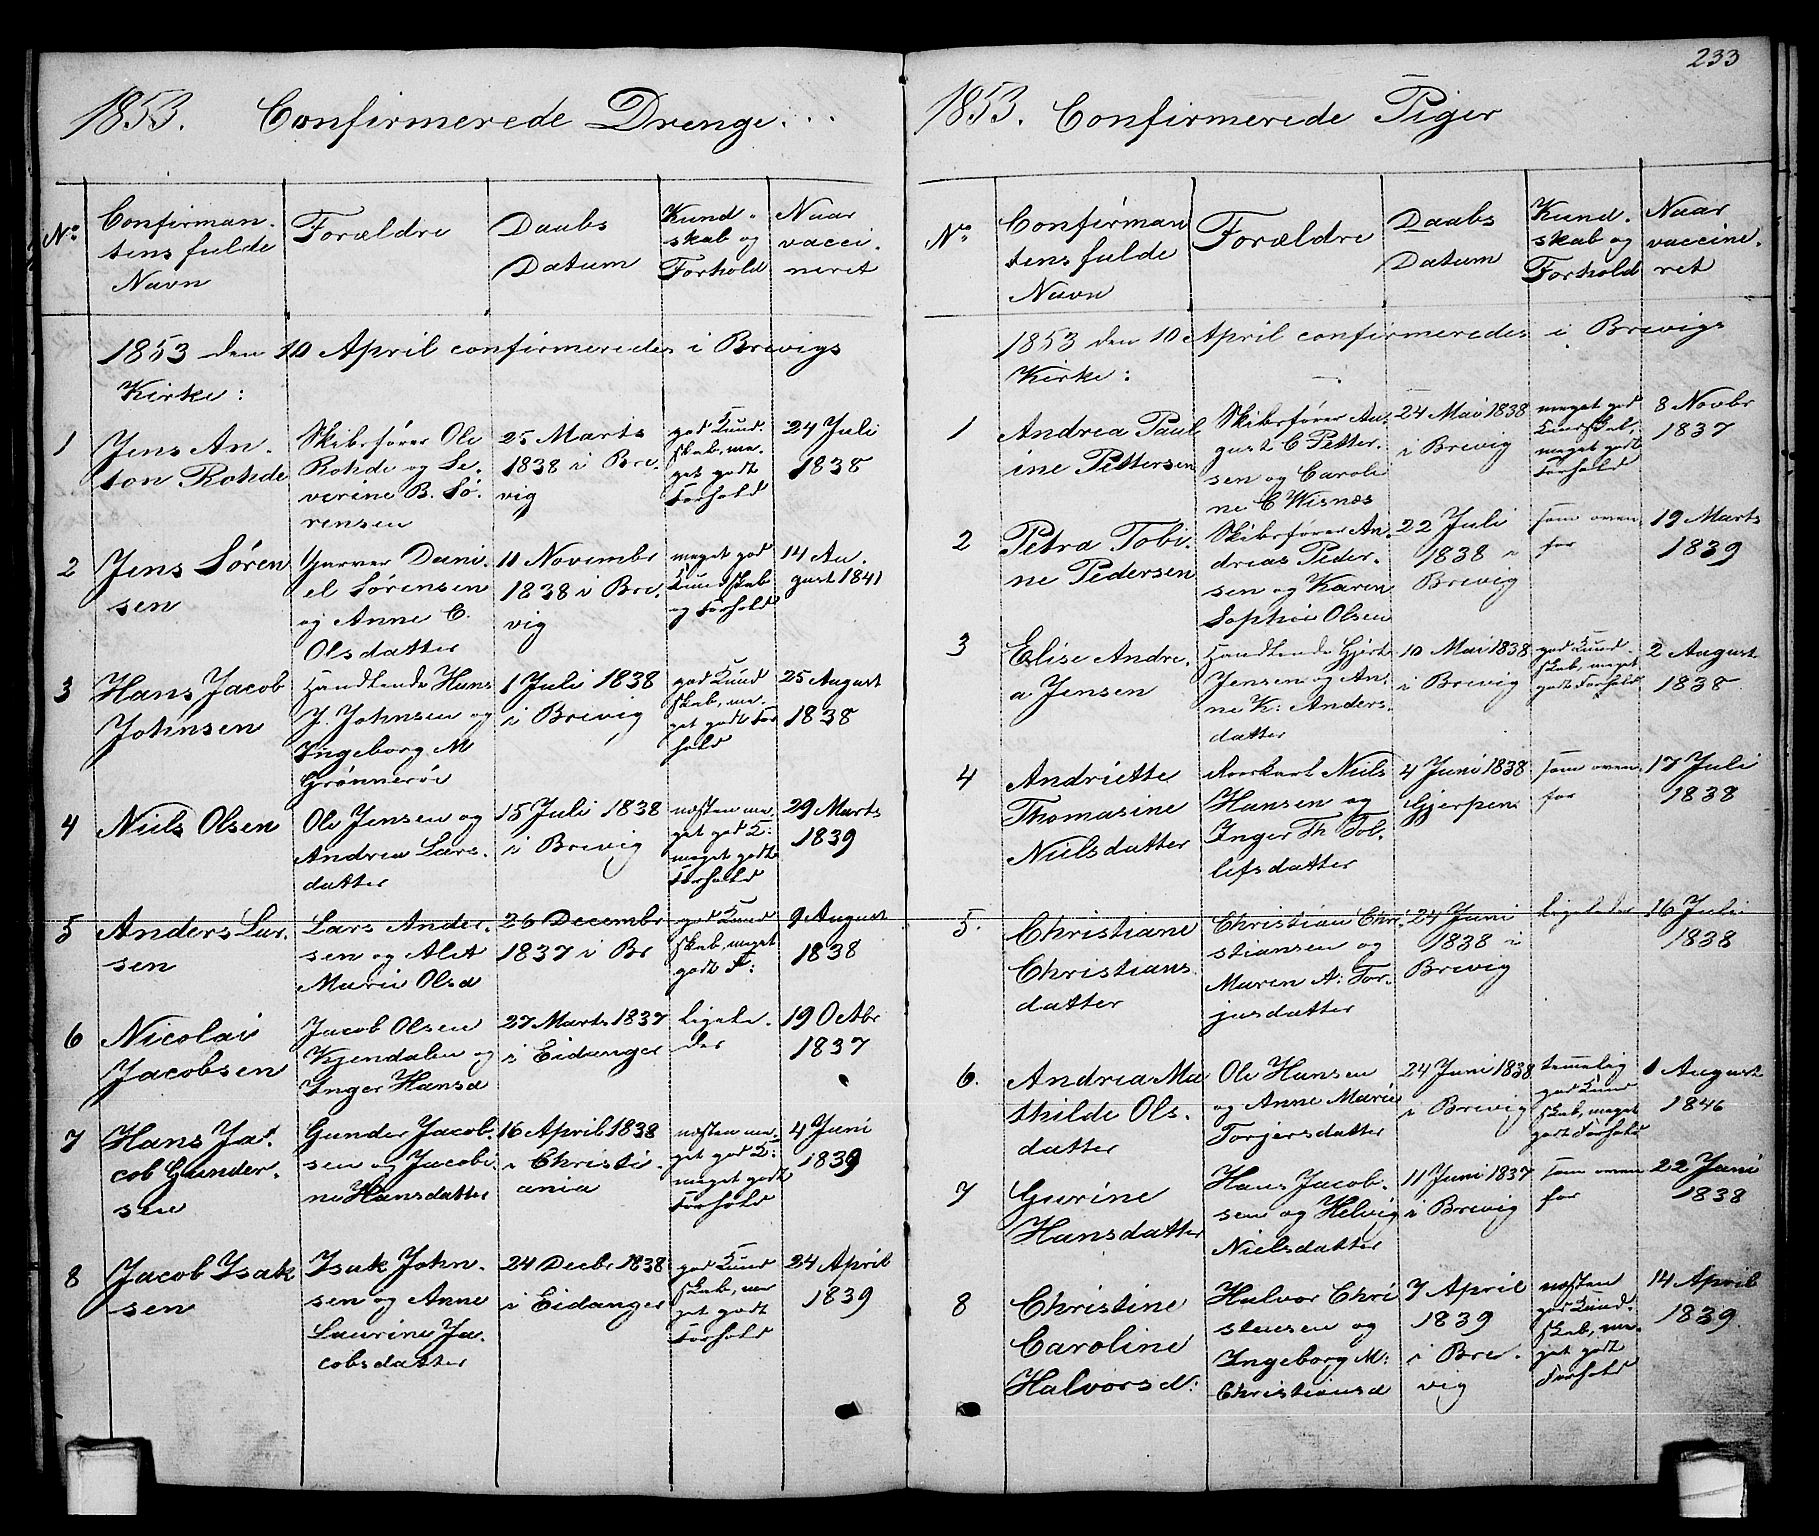 1853. Confirmerede Drenge...
No
Confirman-
tens fulde
Navn
Forældre
Daabs
Datum
Kund-
skab og
Forhold
Naar
vacci-
neret
1853 den 10 April confirmeredes i Brevigs
Kirke:
1
Jens An-
ton Rohde
Skibsfører Ole
Rohde og Se-
verine B. Sø-
rensen
25 Marts
1838 i Bre-
vig
god Kund-
skab, me-
get godt
Forhold
24 Juli
1838
2
Jens Søren
sen
Garver Dani-
el Sørensen
og Anne C.
Olsdatter
11 Novembr
1838 i Bre-
vig
meget god
Kundskab
og Forhold
14 Au-
gust 1841
3
Hans Jacob
Johnsen
Handlende Hans
J. Johnsen og
Ingeborg M
Grønnerøe
1 Juli 1838
i Brevig
god Kund
skab, me-
get godt For
hold
25 August
1838
4
Niels Olsen
Ole Jensen og
Andrea Lars-
datter
15 Juli 1838
i Brevig
næsten me-
get god K:
meget godt
Forhold
29 Marts
1839
5
Anders Lar-
sen
Lars Ander-
sen og Alet
Marie Olsd
26 Decembr
1837 i Br
god Kund
skab, meget
godt F:
9 August
1838
6
Nicolai
Jacobsen
Jacob Olsen
Kjendalen og
Inger Hansd
27 Marts 1837
i Eidanger
ligele-
des
19 Octbr
1837
7
Hans Ja-
cob Gunder-
sen
Gunder Jacob-
sen og Jacobi-
ne Hansdatter
16 April 1838
i Christi-
ania
næsten me-
get god K:
meget godt
Forhold
4 Juni
1839
8
Jacob Isak
sen
Isak John-
sen og Anne
Laurine Ja-
cobsdatter
24 Decbr 1838
i Eidanger
god Kund
skab, me
get godt
Forhold
24 April
1839
233
1853. Confirmerede Piger
No
Confirman
tens fulde
Navn
Forældre
Daabs
Datum
Kund-
skab og
Forhold
Naar
vaccine-
ret
1853 den 10 April confirmeredes i Brevigs
Kirke:
1
Andrea Paul
ine Pettersen
Skibsfører Au-
gust C Petter-
sen og Caroli
ne C Wisnæs
24 Mai 1838
i Brevig
meget god
Kundskab,
meget godt
Forhold
8 Novbr
1837
2
Petra Tobi-
ne Pedersen
Skibsfører An-
dreas Peder-
sen og Karen
Sophie Olsen
22 Juli
1838 i
Brevig
som oven
for
19 Marts
1839
3
Elise Andre-
a Jensen
Handlende Gjert
Jensen og An-
ne K: Anders-
datter
10 Mai 1838
i Brevig
god Kund-
skab, meget
godt Forhold
2 August
1838
4
Andriette
Thomasine
Nielsdatter
Niels
Hansen og
Inger Th Tol-
lefsdatter
4 Juni 1838
Gjerpen
som oven-
for
17 Juli
1838
5.
Christiane
Christians
datter
Christian Chri-
stiansen og
Maren A: Tor-
jusdatter
24 Juni
1838 i
Brevig
ligeledes
16 Juli
1838
6.
Andrea Ma
thilde Ols-
datter
Ole Hansen
og Anne Marie
Torjersdatter
24 Juni 1838
i Brevig
temmelig
god Kund
skab, meget
godt Forhold
1 August
1846
7
Gurine
Hansdatter
Hans Jacob-
sen og Helvig
Nielsdatter
11 Juni 1837
i Brevig
som oven
for
22 Juni
1838
8
Christine
Caroline
Halvorsd:
Halvor Chri
stensen og
Ingeborg M:
Christiansd
7 April
1839
i Bre-
vig
næsten
god Kund-
skab, me-
get godt
Forhold
14 April
1839.